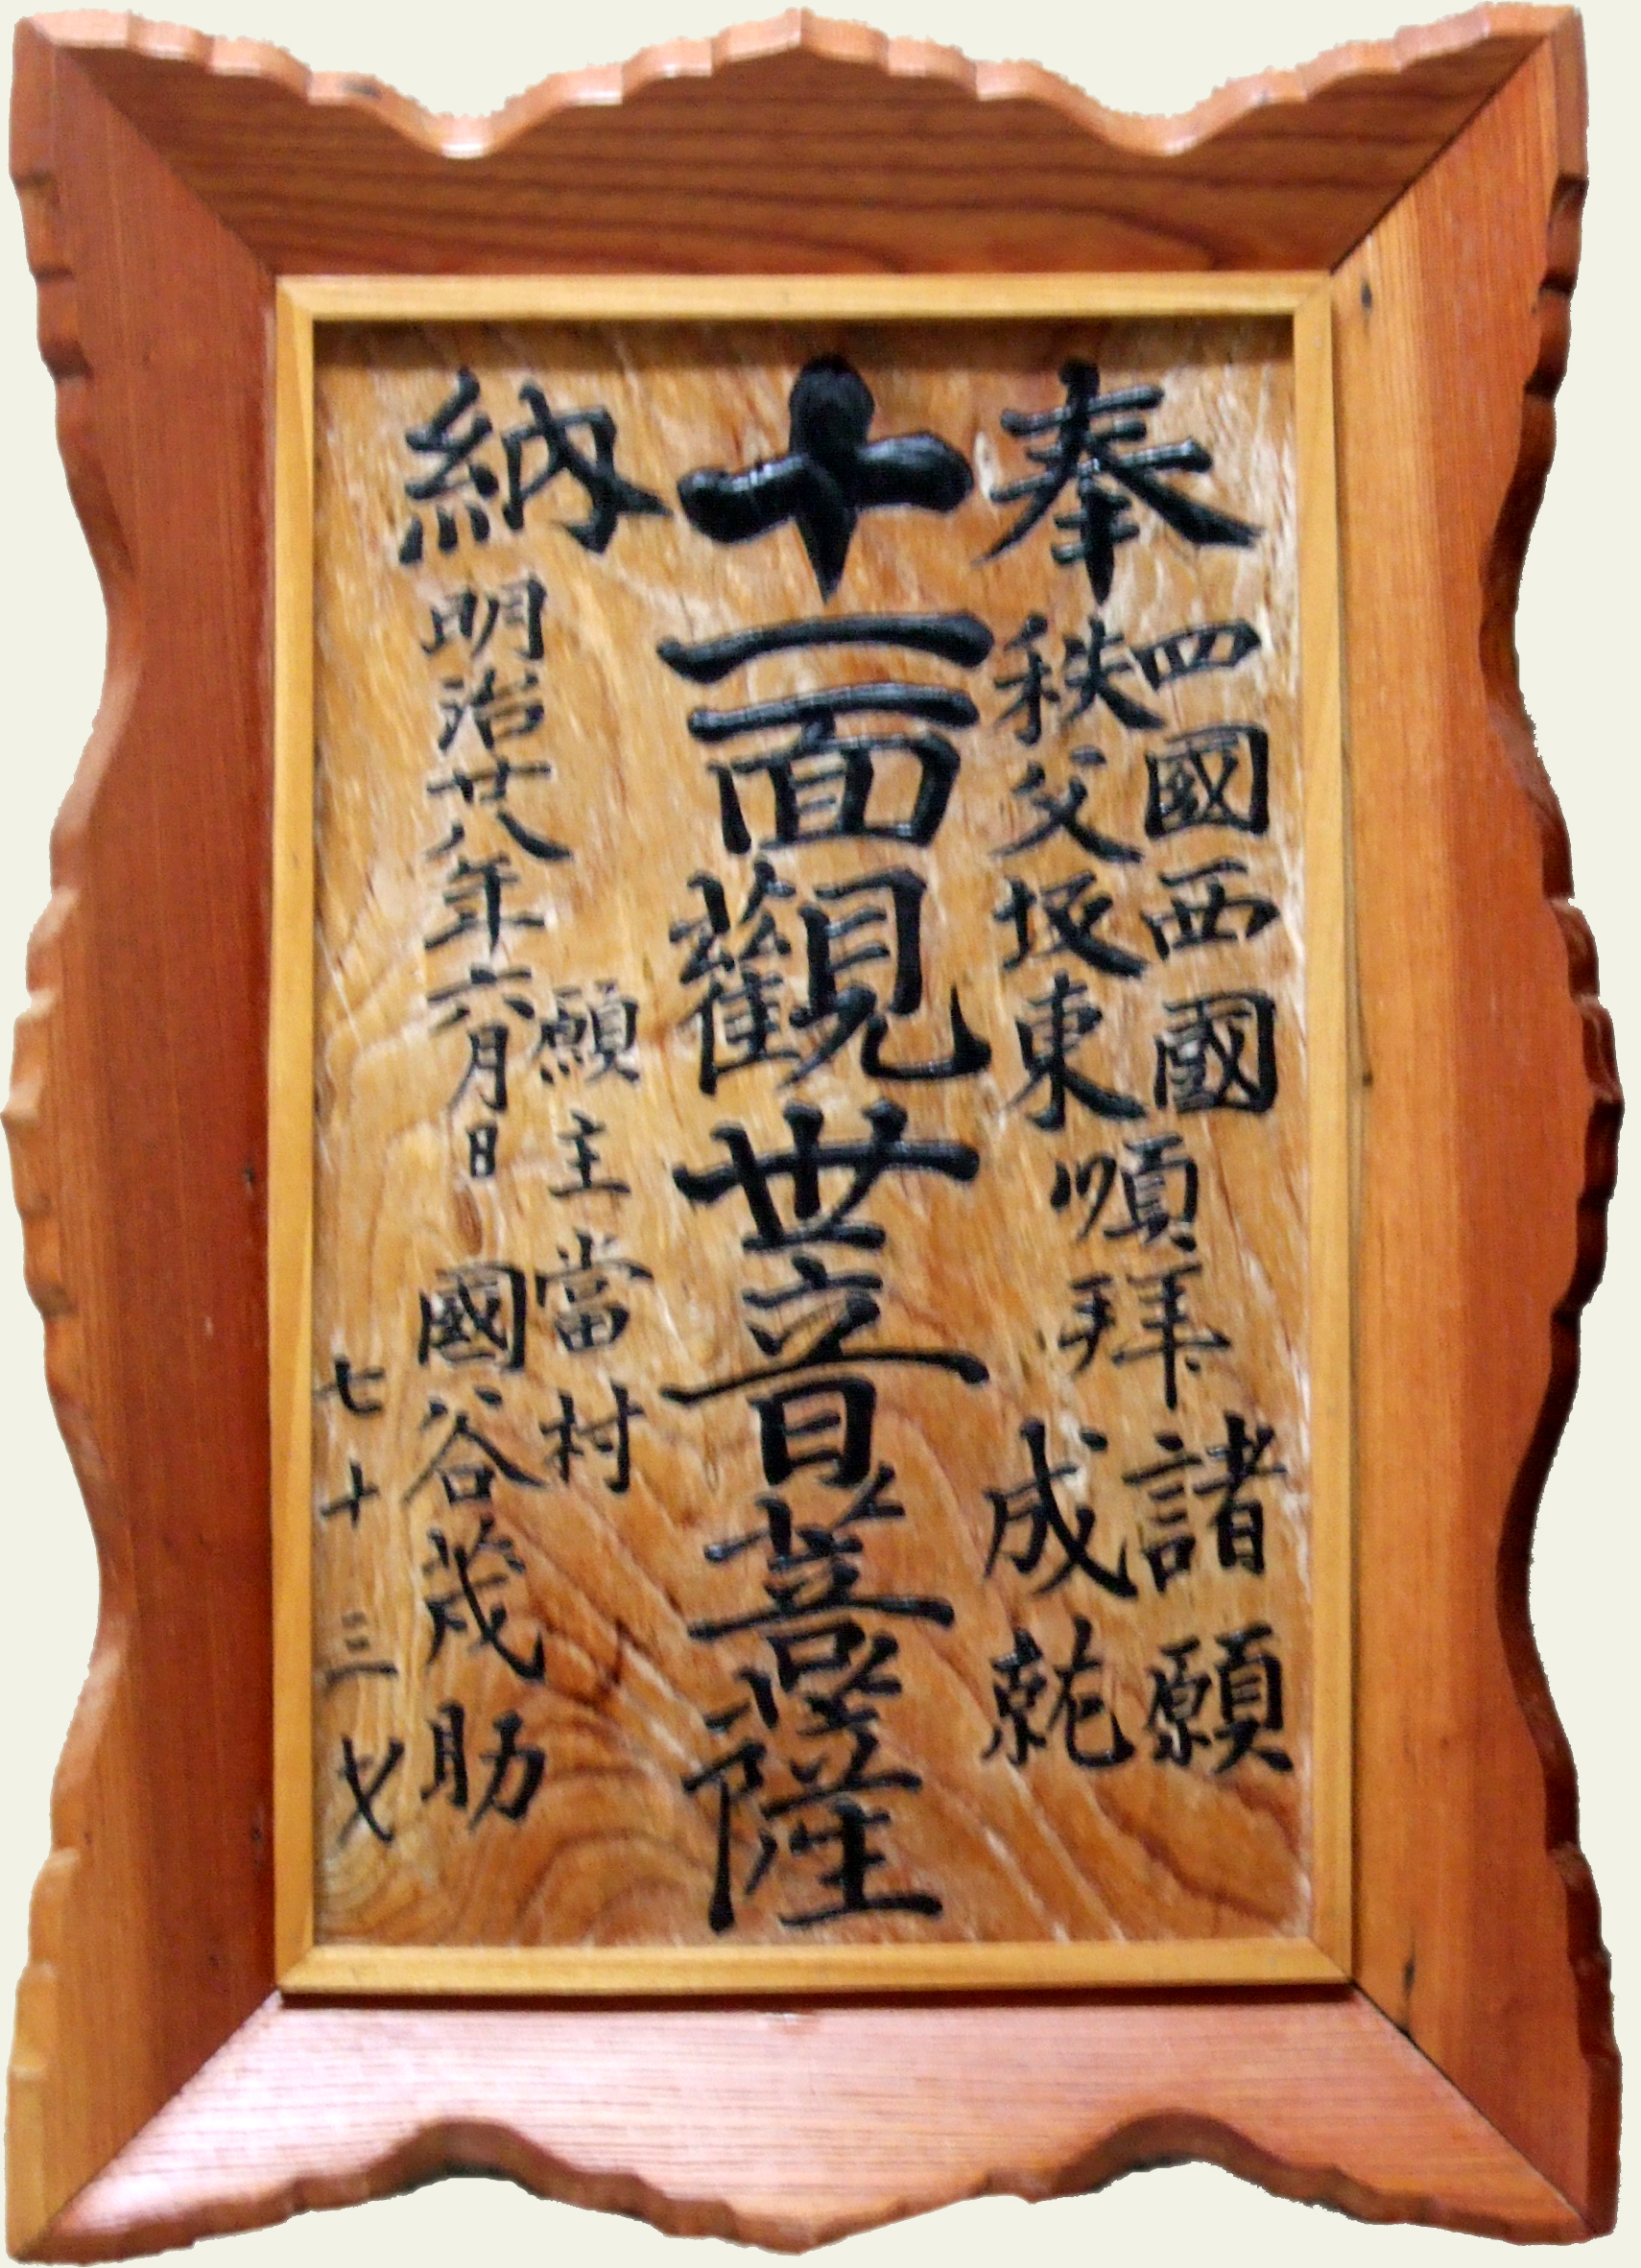 奉
四國西國
秩父坂東
順拜
諸願
成就
十一面觀世音菩薩
納
願主當村
明治廿八年六月日
國谷茂助
七十三才